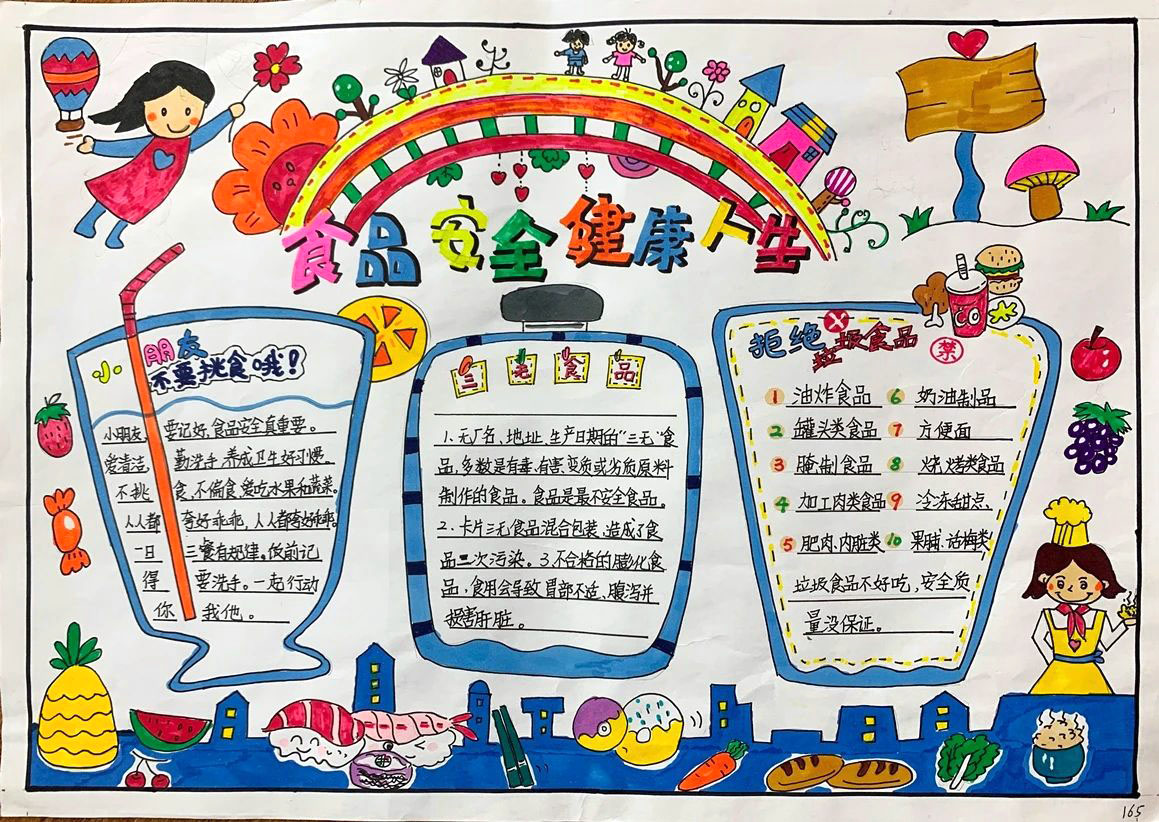 食品安全健康人生
小朋友
不要挑食哦！
小朋友，要记好，食品安全真重要。
爱清洁，勤洗手，养成卫生好习惯。
不挑食，不偏食，爱吃水果和蔬菜。
人人都夸好乖乖，人人都夸好乖乖。
一日三餐有规律。饭前记
得要洗手。一起行动
你我他。
三无食品
1、无厂名、地址、生产日期的"三无"食
品，多数是有毒、有害、变质或劣质原料
制作的食品。食品是最不安全食品。
2、卡片三无食品混合包装，造成了食
品二次污染。3.不合格的膨化食
品，食用会导致胃部不适、腹泻并
损害肝脏。
拒绝垃圾食品
禁
CO
1 油炸食品 6 奶油制品
2 罐头类食品 7 方便面
3 腌制食品 8 烧烤类食品
4 加工肉类食品 9 冷冻甜点、
5 肥肉、内脏类 10 果脯、话梅类
垃圾食品不好吃，安全质
量没保证。
165